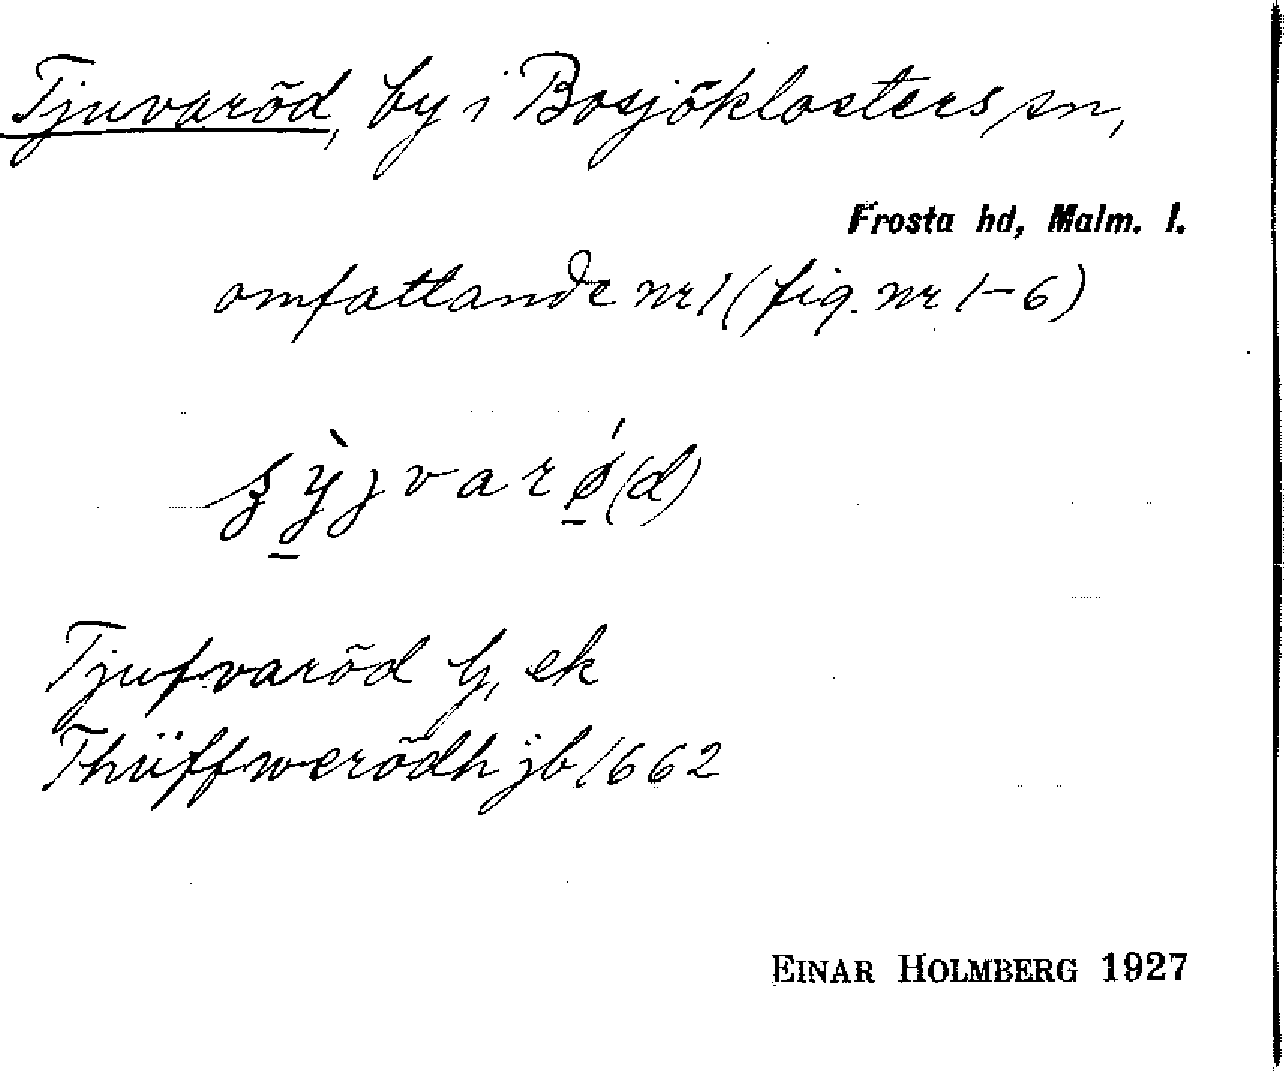 Tjuvaröd, by i Bosjöklosters sn,
Frosta hd, Malm. l.
omfattande nr 1 (fig. nr 1-6)
Tjufvaröd G, ek
Thüffwerödh jb 1662
EINAR HOLMBERG 1927